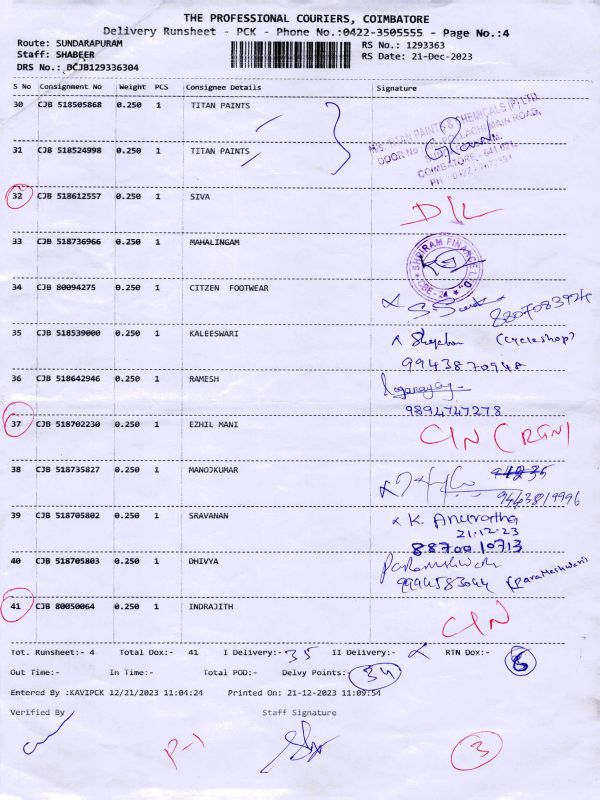 THE PROFESSIONAL COURIERS, COIMBATORE
Delivery Runsheet - PCK - Phone No.:0422-3505555 - Page No.:4
Route: SUNDARAPURAM RS No.: 1293363
Staff: SHABEER RS Date: 21-Dec-2023
DRS No.: DCJB129336304
S No Consignment No Weight PCS Consignee Details Signature
30 CJB 518505868 0.250 1 TITAN PAINTS
31 CJB 518524998 0.250 1 TITAN PAINTS
M/S. TITAN PAINT & CHEMICALS (P) LTD.
DOOR NO POLLACHI MAIN ROAD,
COIMBATORE - 641
PH : 0422
32 CJB 518612557 0.250 1 SIVA D/L
33 CJB 518736966 0.250 1 MAHALINGAM
SHRIRAM FINANCE LTD.
CBE - 24
34 CJB 80094275 0.250 1 CITZEN FOOTWEAR
8807083924
35 CJB 518539000 0.250 1 KALEESWARI (Cycleshop)
9943870948
36 CJB 518642946 0.250 1 RAMESH
9894747278
37 CJB 518702230 0.250 1 EZHIL MANI C/N (RGN)
38 CJB 518735827 0.250 1 MANOJKUMAR
9443819996
39 CJB 518705802 0.250 1 SRAVANAN K. Anuratha
21.12.23
88700 10713
40 CJB 518705803 0.250 1 DHIVYA
9994583044 (ParaMeshwari)
41 CJB 80050064 0.250 1 INDRAJITH C/N
Tot. Runsheet:- 4 Total Dox:- 41 I Delivery:- 35 II Delivery:- RTN Dox:- 6
Out Time:- In Time:- Total POD:- Delvy Points:- 34
Entered By :KAVIPCK 12/21/2023 11:04:24 Printed On: 21-12-2023 11:09:54
Verified By Staff Signature
P-1 3